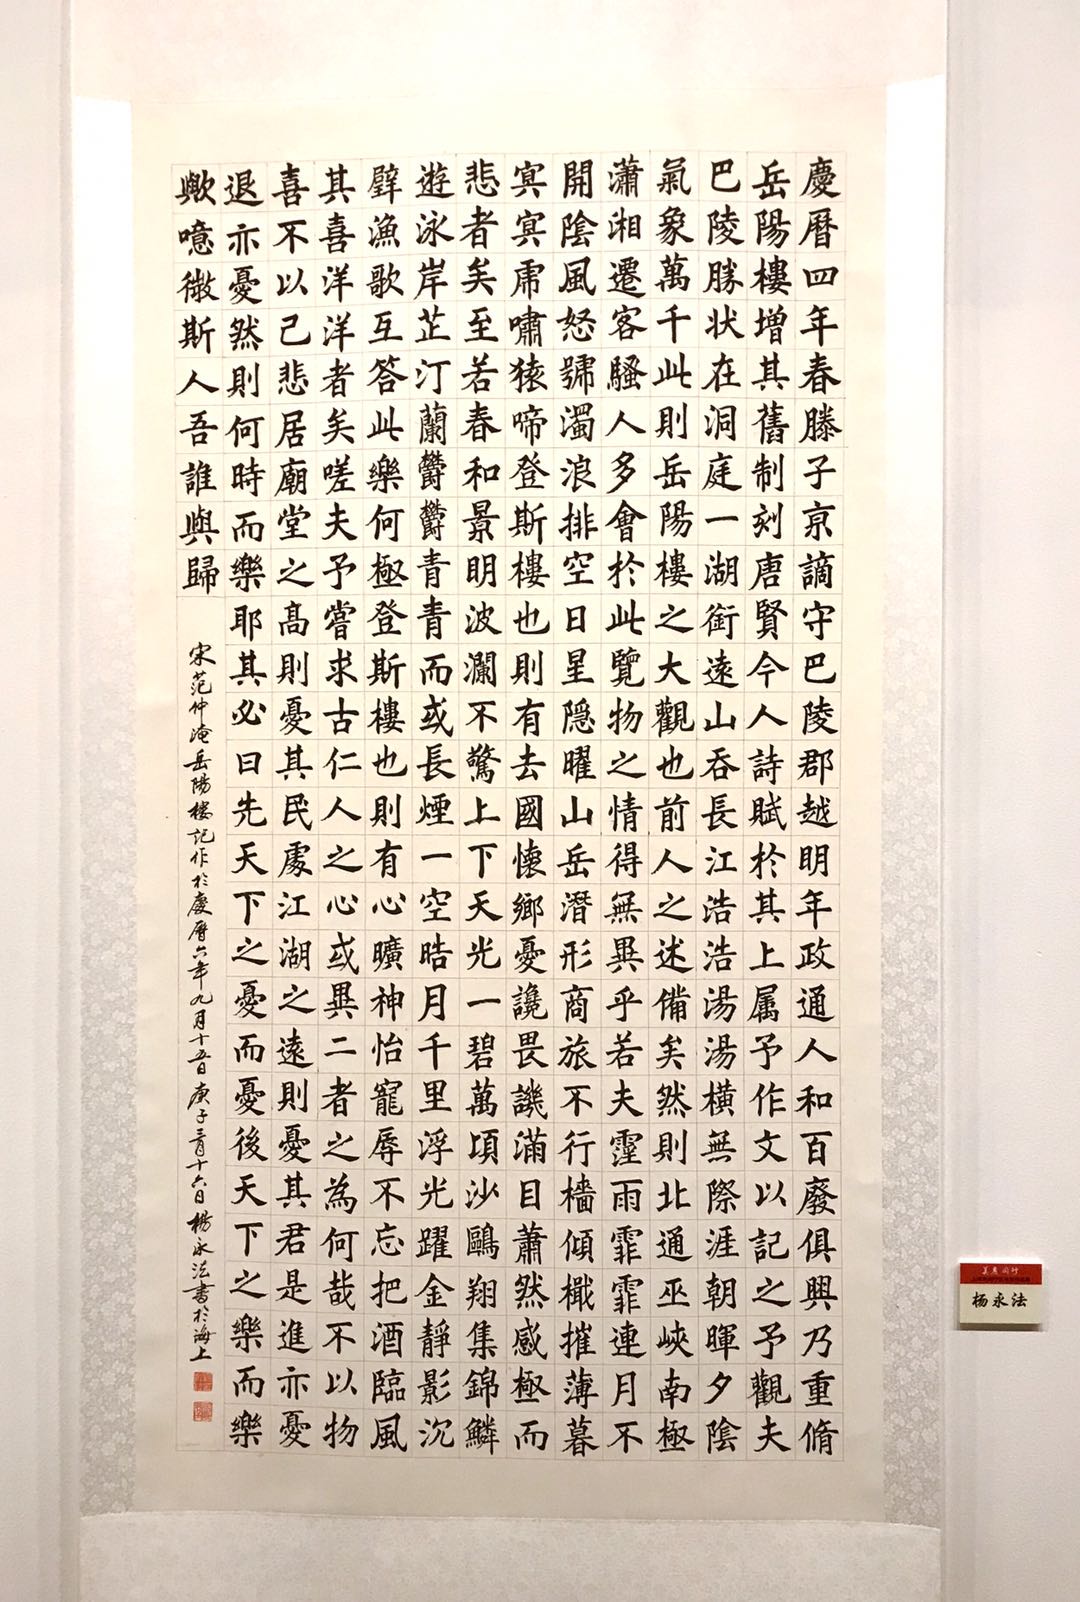 慶曆四年春滕子京謫守巴陵郡越明年政通人和百廢俱興乃重脩
岳陽樓增其舊制刻唐賢今人詩賦於其上属予作文以記之予觀夫
巴陵勝状在洞庭一湖銜遠山吞長江浩浩湯湯橫無際涯朝暉夕陰
氣象萬千此則岳陽樓之大觀也前人之述備矣然則北通巫峽南極
瀟湘遷客騷人多會於此覽物之情得無異乎若夫霪雨霏霏連月不
開陰風怒號濁浪排空日星隱曜山岳潛形商旅不行檣傾檝摧薄暮
冥冥虎嘯猿啼登斯樓也則有去國懷鄉憂讒畏譏滿目蕭然感極而
悲者矣至若春和景明波瀾不驚上下天光一碧萬頃沙鷗翔集錦鱗
遊泳岸芷汀蘭欝欝青青而或長煙一空晧月千里浮光躍金靜影沉
璧漁歌互答此樂何極登斯樓也則有心曠神怡寵辱不忘把酒臨風
其喜洋洋者矣嗟夫予嘗求古仁人之心或異二者之為何哉不以物
喜不以己悲居廟堂之高則憂其民處江湖之遠則憂其君是進亦憂
退亦憂然則何時而樂耶其必曰先天下之憂而憂後天下之樂而樂
歟噫微斯人吾誰與歸
宋范仲淹岳陽樓記作於慶曆六年九月十五日庚子三月十六日楊永法書於海上
杨永法